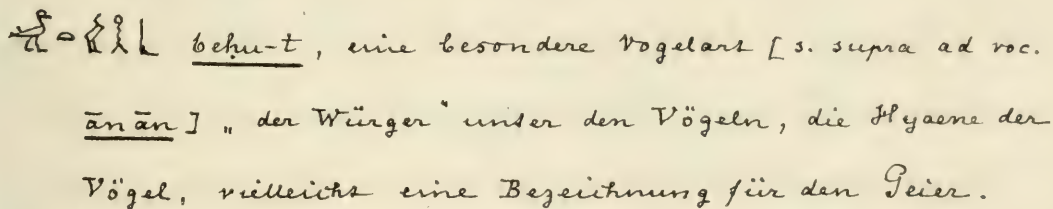 beḥu-t, eine besondere Vogelart [s. supra ad voc.
ān ān] „der Würger" unter den Vögeln, die Hyaene der
Vögel, vielleicht eine Bezeichnung für den Geier.